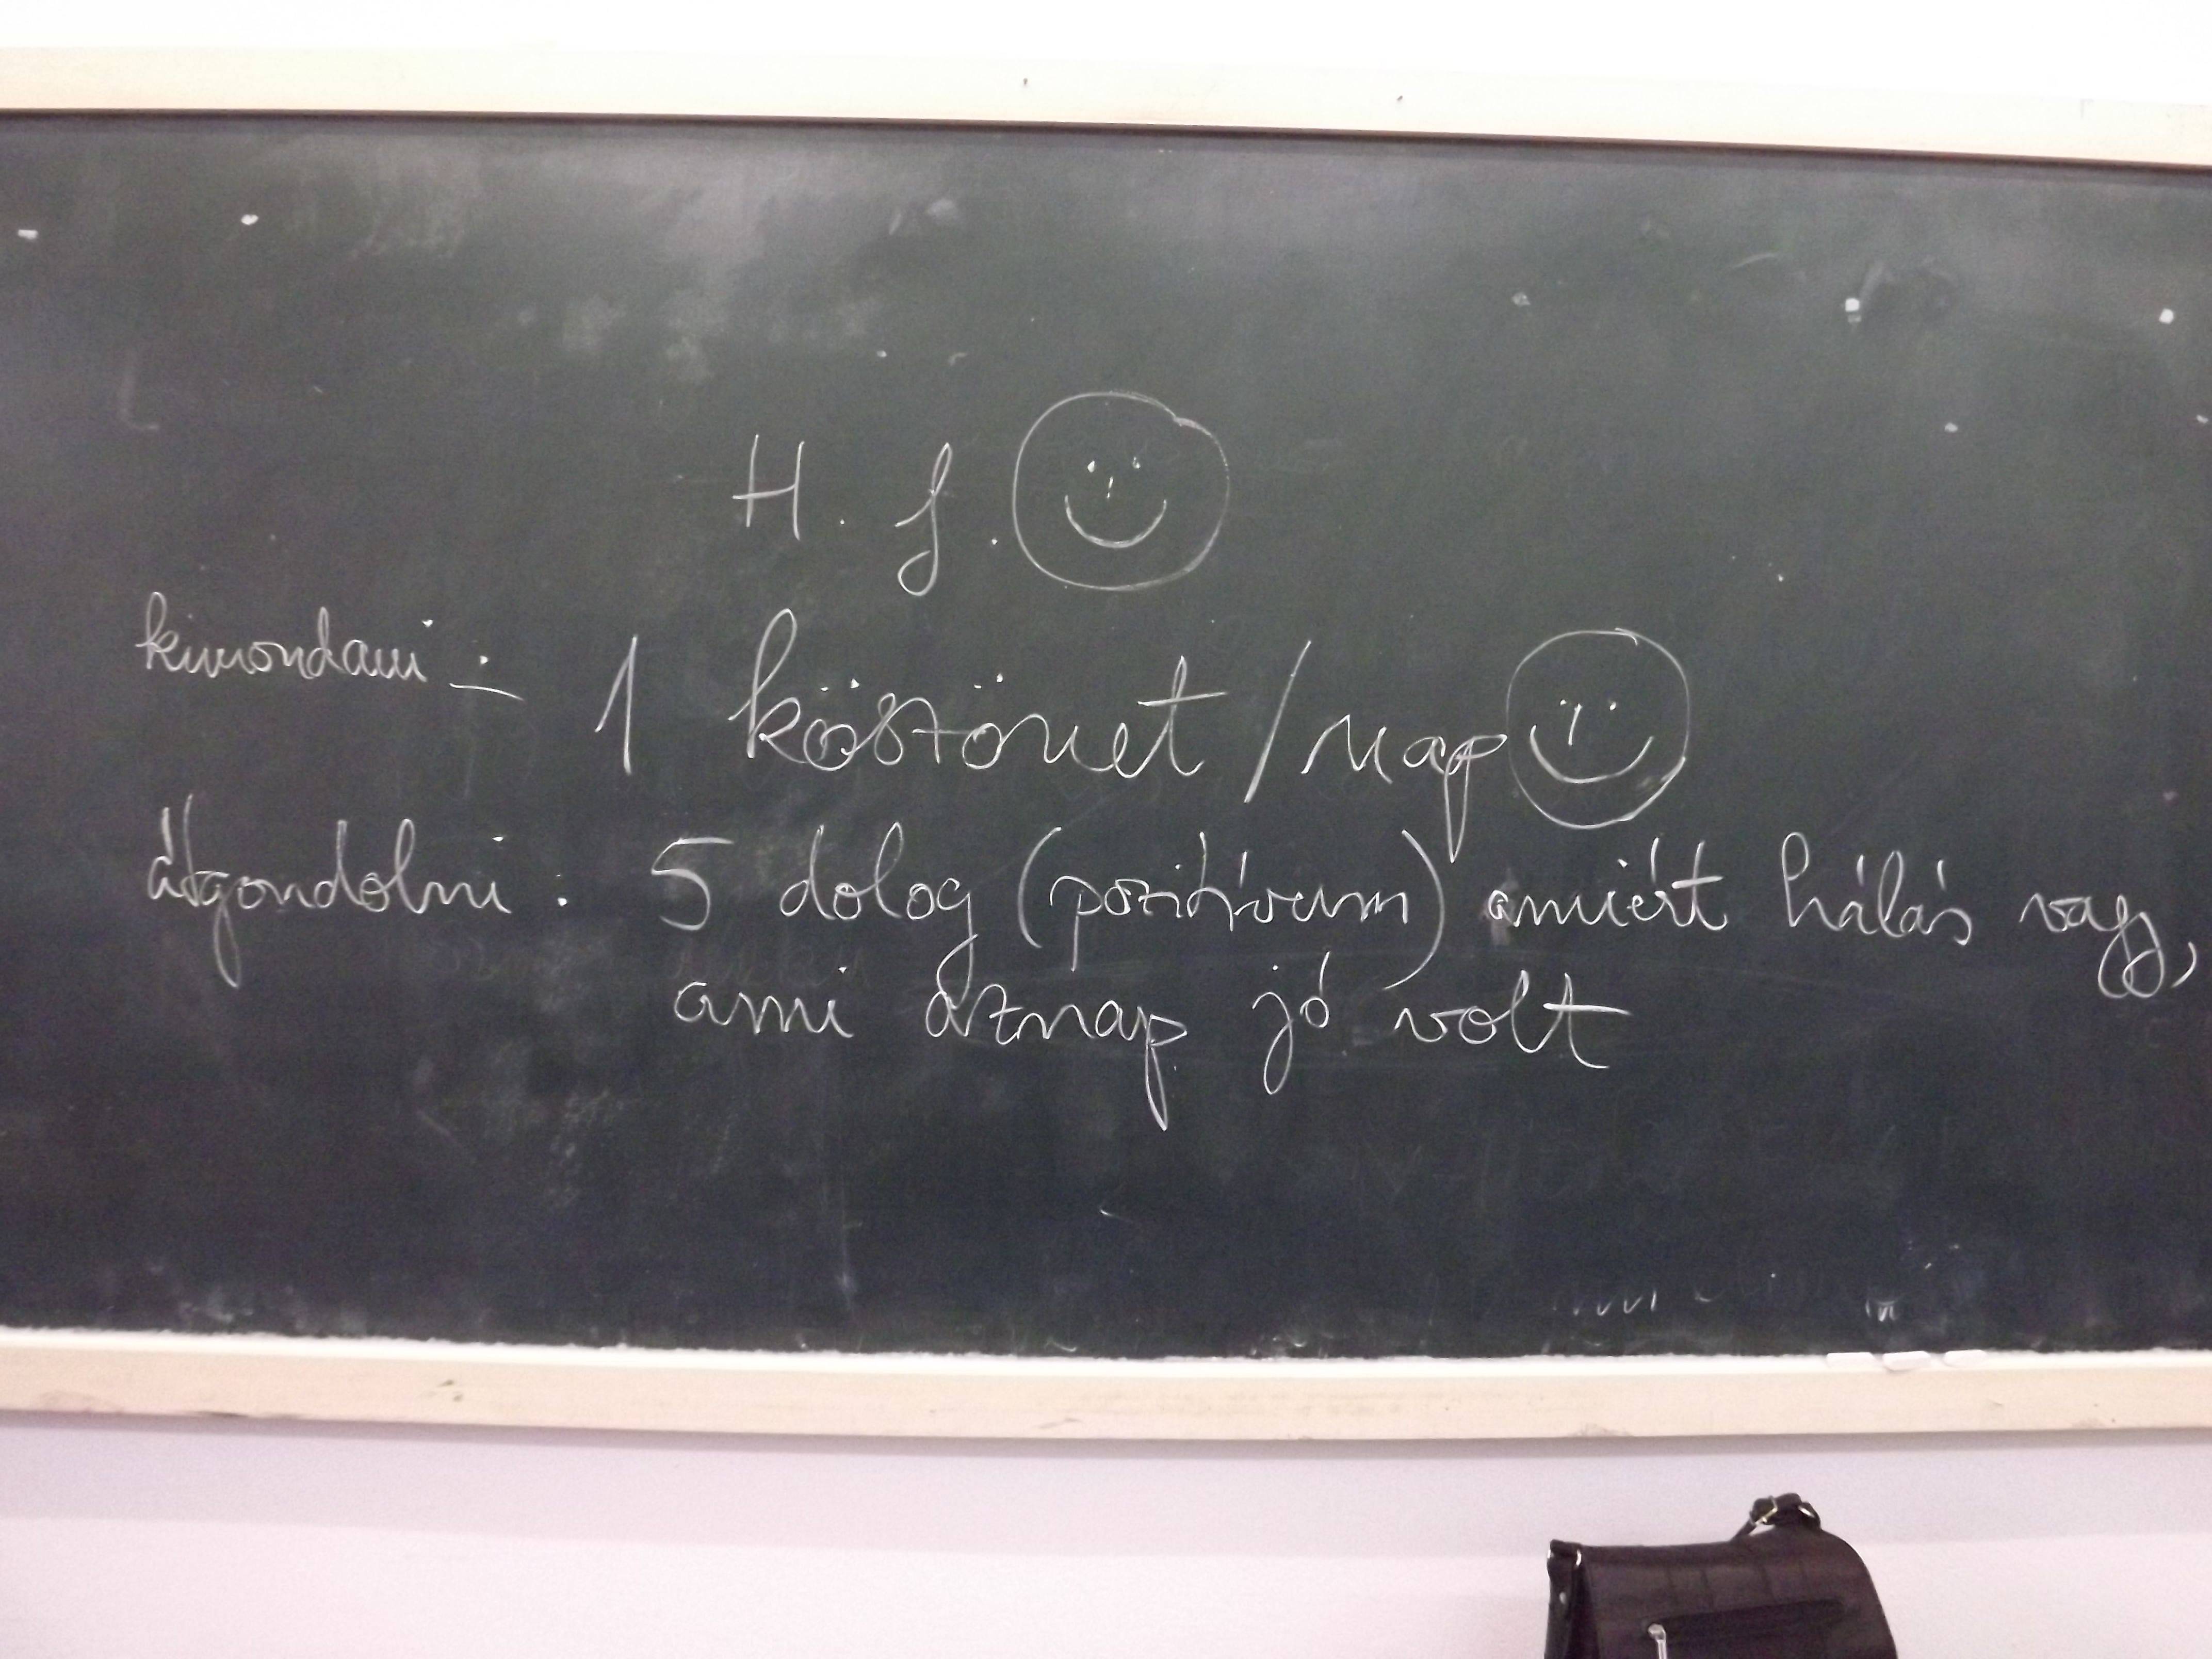 H. f.
kimondani : 1 köszönet / nap
átgondolni : 5 dolog (pozitívum) amiért hálás vagy,
ami aznap jó volt